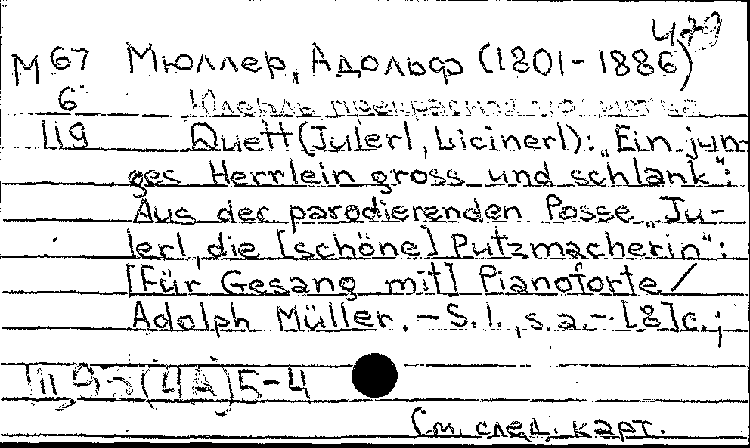 М 67 Мюллер, Адольф (1801-1886)
6 Юлерль прекрасная
119 Duett (Julerl, Licinerl): „Ein jun-
ges Herrlein gross und schlank“:
Aus der parodierenden Posse „Ju-
lerl, die [schöne] Putzmacherin“:
[Für Gesang mit] Pianoforte /
Adolph Müller. – S.l., s.a. – [8]c.;
5-4
См. след. карт.